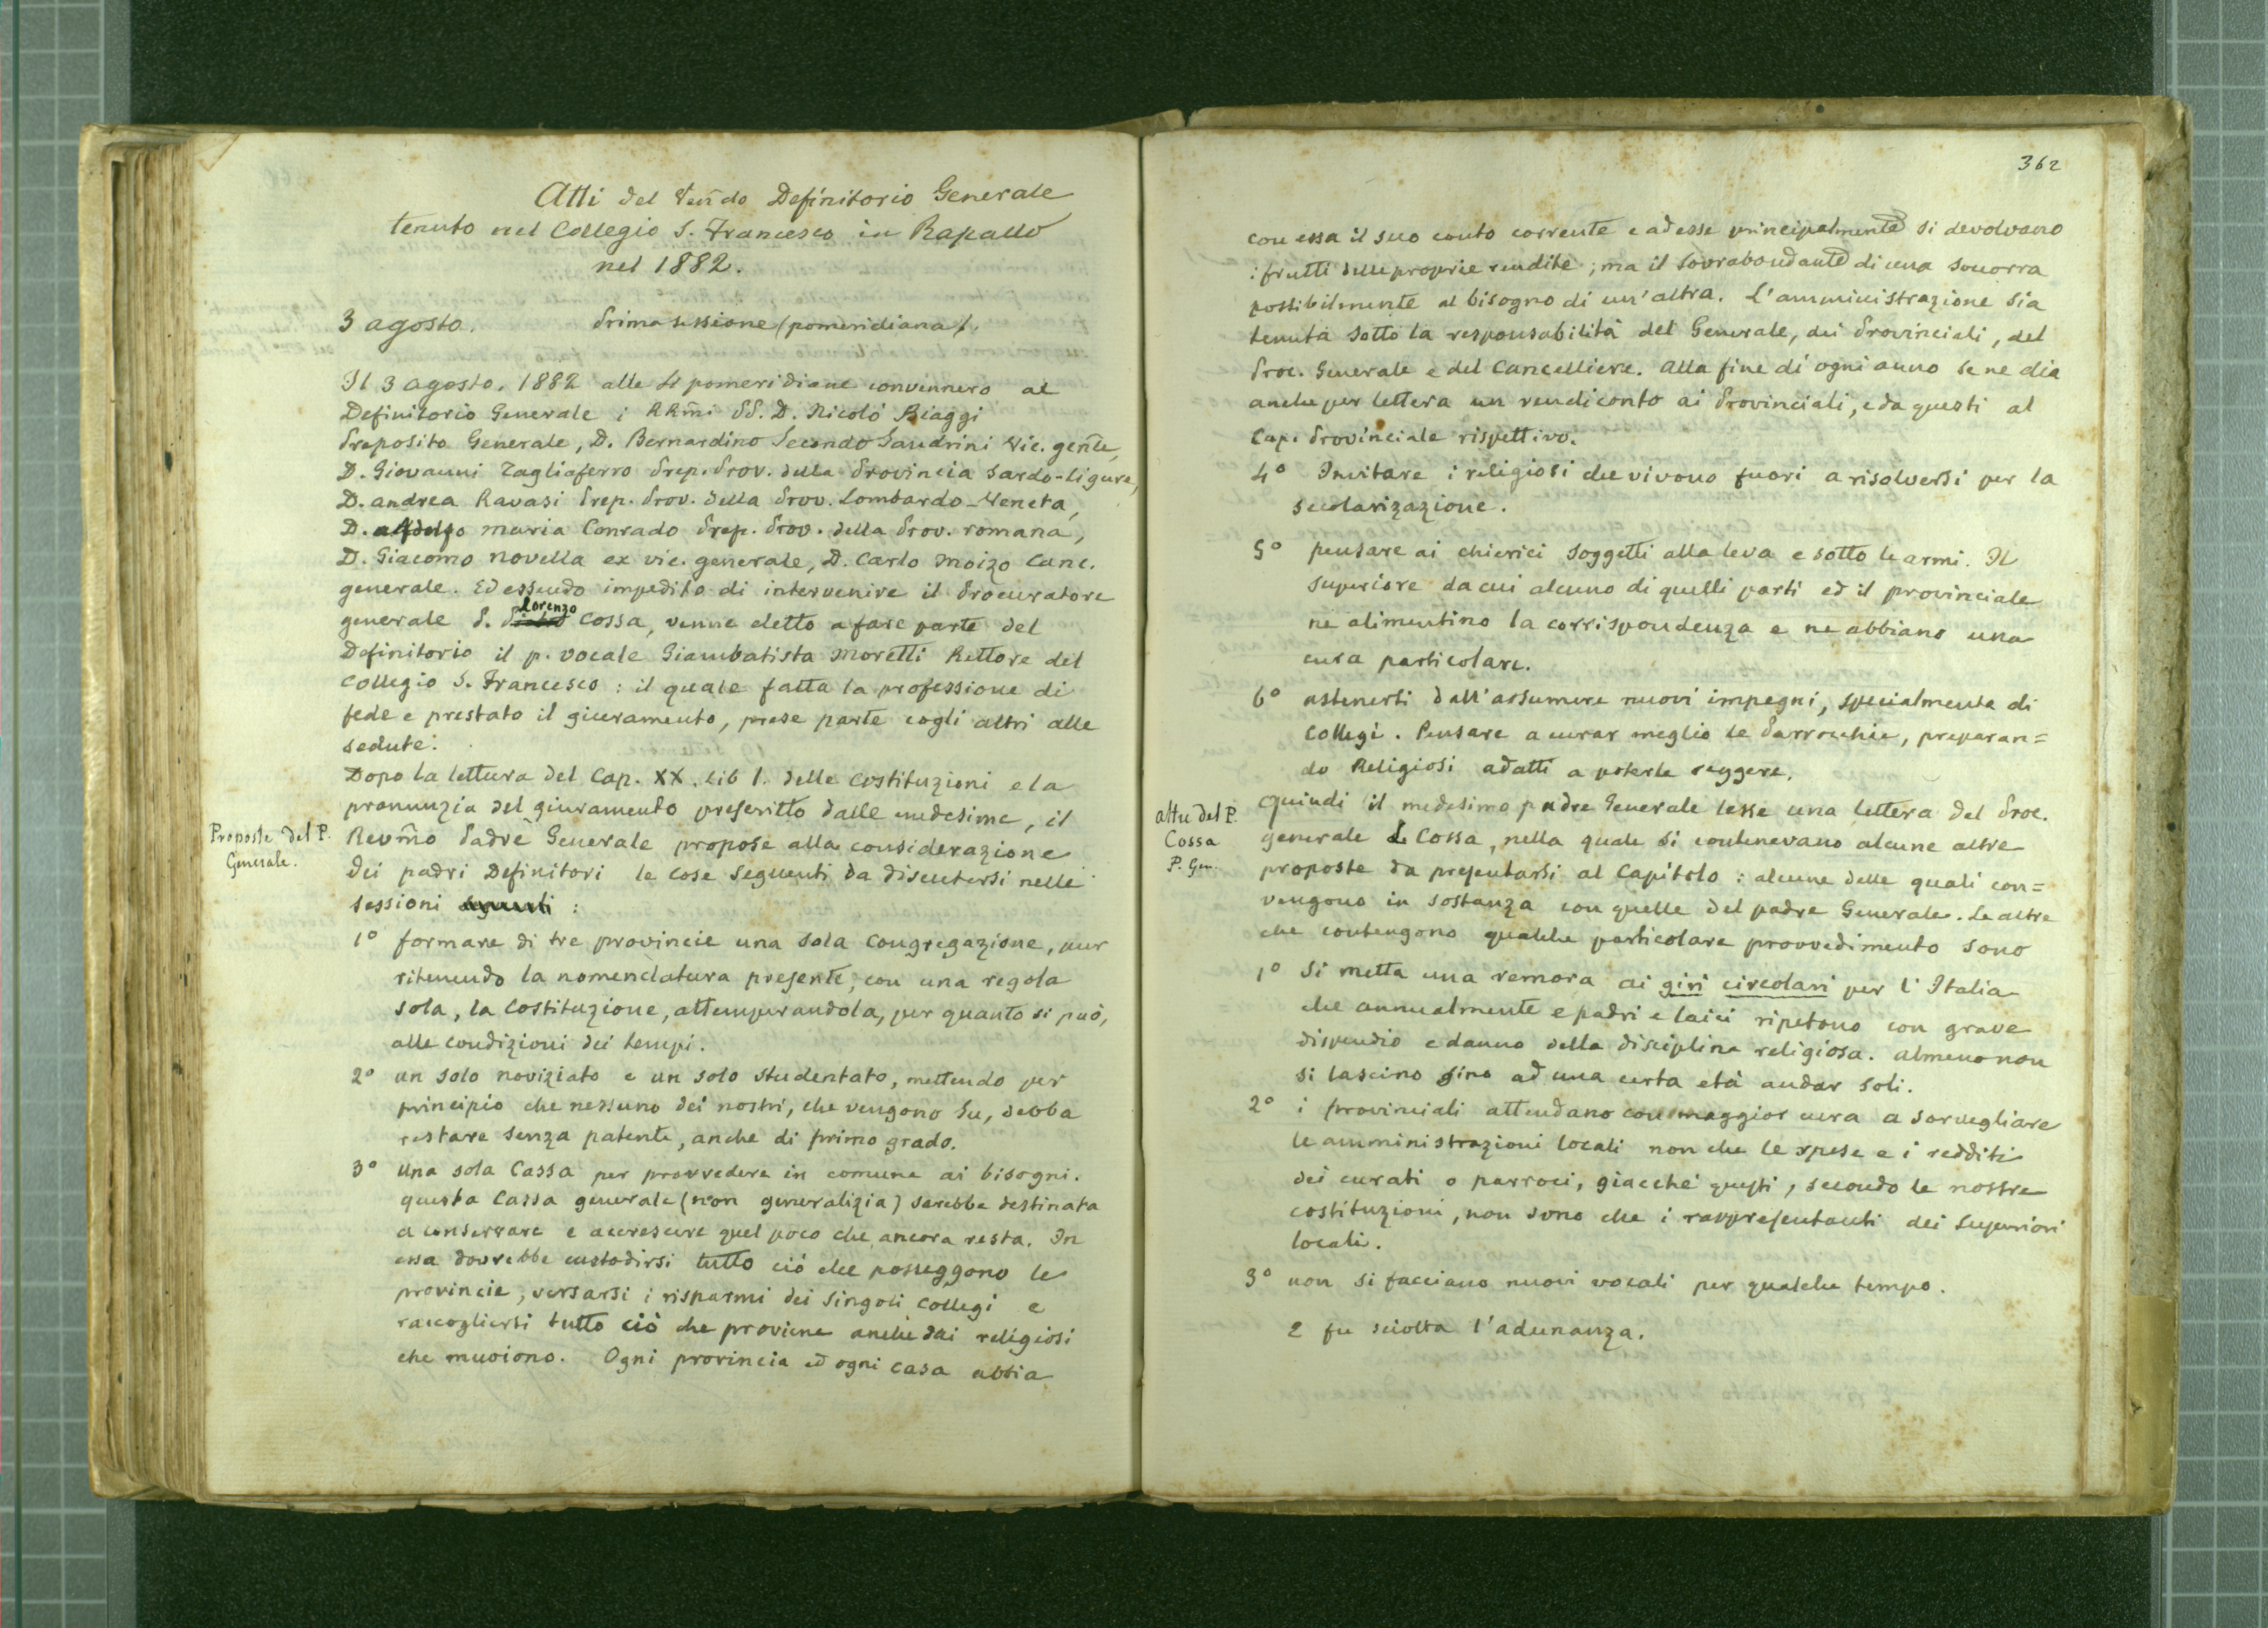 Atti del Ven̄do Definitorio Generale
tenuto nel Collegio S. Francesco in Rapallo
nel 1882.
3 agosto. Prima sessione (pomeridiana).
Il 3 agosto. 1882 alle 4 pomeridiane convennero al
Definitorio Generale i RRm̄i PP. D. Nicolò Biaggi
Preposito Generale, D. Bernardino Secondo Sandrini Vic. gen̄le,
D. Giovanni Tagliaferro Prep. Prov. della Provincia Sardo-ligure,
D. Andrea Ravasi Prep. Prov. della Prov. Lombardo-Veneta,
D. Maria Conrado Prep. Prov. della Prov. romana,
D. Giacomo Novella ex vic. generale, D. Carlo Moizo Canc.
generale. Ed essendo impedito di intervenire il Procuratore
generale P. Lorenzo Cossa, venne eletto a fare parte del
Definitorio il p. vocale Giambatista Moretti Rettore del
Collegio S. Francesco : il quale fatta la professione di
fede e prestato il giuramento, prese parte cogli altri alle
sedute.
Dopo la lettura del Cap. XX. Lib 1. delle Costituzioni e la
pronunzia del giuramento prescritto dalle medesime, il
Proposte del P.
Generale.
Revm̄o Padre Generale propose alla considerazione
dei padri Definitori le cose seguenti da discutersi nelle
sessioni seguenti :
1° formare di tre provincie una sola Congregazione, pur
ritenendo la nomenclatura presente, con una regola
sola, la Costituzione, attemperandola, per quanto si può,
alle condizioni dei tempi.
2° un solo noviziato e un solo studentato, mettendo per
principio che nessuno dei nostri, che vengono su, debba
restare senza patente, anche di primo grado.
3° Una sola Cassa per provvedere in comune ai bisogni.
questa Cassa generale (non generalizia) sarebbe destinata
a conservare e accrescere quel poco che ancora resta. In
essa dovrebbe custodirsi tutto ciò che posseggono le
provincie, versarsi i risparmi dei singoli Collegi e
raccogliersi tutto ciò che proviene anche dai religiosi
che muoiono. Ogni provincia ed ogni casa abbia
362
con essa il suo conto corrente e ad esse principalmente si devolvano
i frutti delle proprie rendite ; ma il sovrabondante di una soccorra
possibilmente al bisogno di un'altra. L'amministrazione sia
tenuta sotto la responsabilità del Generale, dei Provinciali, del
Proc. Generale e del Cancelliere. Alla fine di ogni anno se ne dia
anche per lettera un rendiconto ai Provinciali, e da questi al
Cap. Provinciale rispettivo.
4° Invitare i religiosi che vivono fuori a risolversi per la
secolarizazione.
5° pensare ai chierici soggetti alla leva e sotto le armi. Il
superiore da cui alcuno di quelli parti ed il provinciale
ne alimentino la corrispondenza e ne abbiano una
cura particolare.
6° astenersi dall'assumere nuovi impegni, specialmente di
Collegi. Pensare a curar meglio le Parrocchie, preparan=
do Religiosi adatti a poterle reggere.
altre del P.
Cossa
P. Gen.
Quindi il medesimo padre Generale lesse una lettera del Proc.
generale L. Cossa, nella quale si contenevano alcune altre
proposte da presentarsi al Capitolo : alcune delle quali con=
vengono in sostanza con quelle del padre Generale. Le altre
che contengono qualche particolare provvedimento sono
1° Si metta una remora ai giri circolari per l'Italia
che annualmente e padri e laici ripetono con grave
dispendio e danno della disciplina religiosa. Almeno non
si lascino sino ad una certa età andar soli.
2° i provinciali attendano con maggior cura a sorvegliare
le amministrazioni locali non che le spese e i redditi
dei curati o parroci, giacchè questi, secondo le nostre
costituzioni, non sono che i rappresentanti dei Superiori
locali.
3° non si facciano nuovi vocali per qualche tempo.
E fu sciolta l'adunanza.